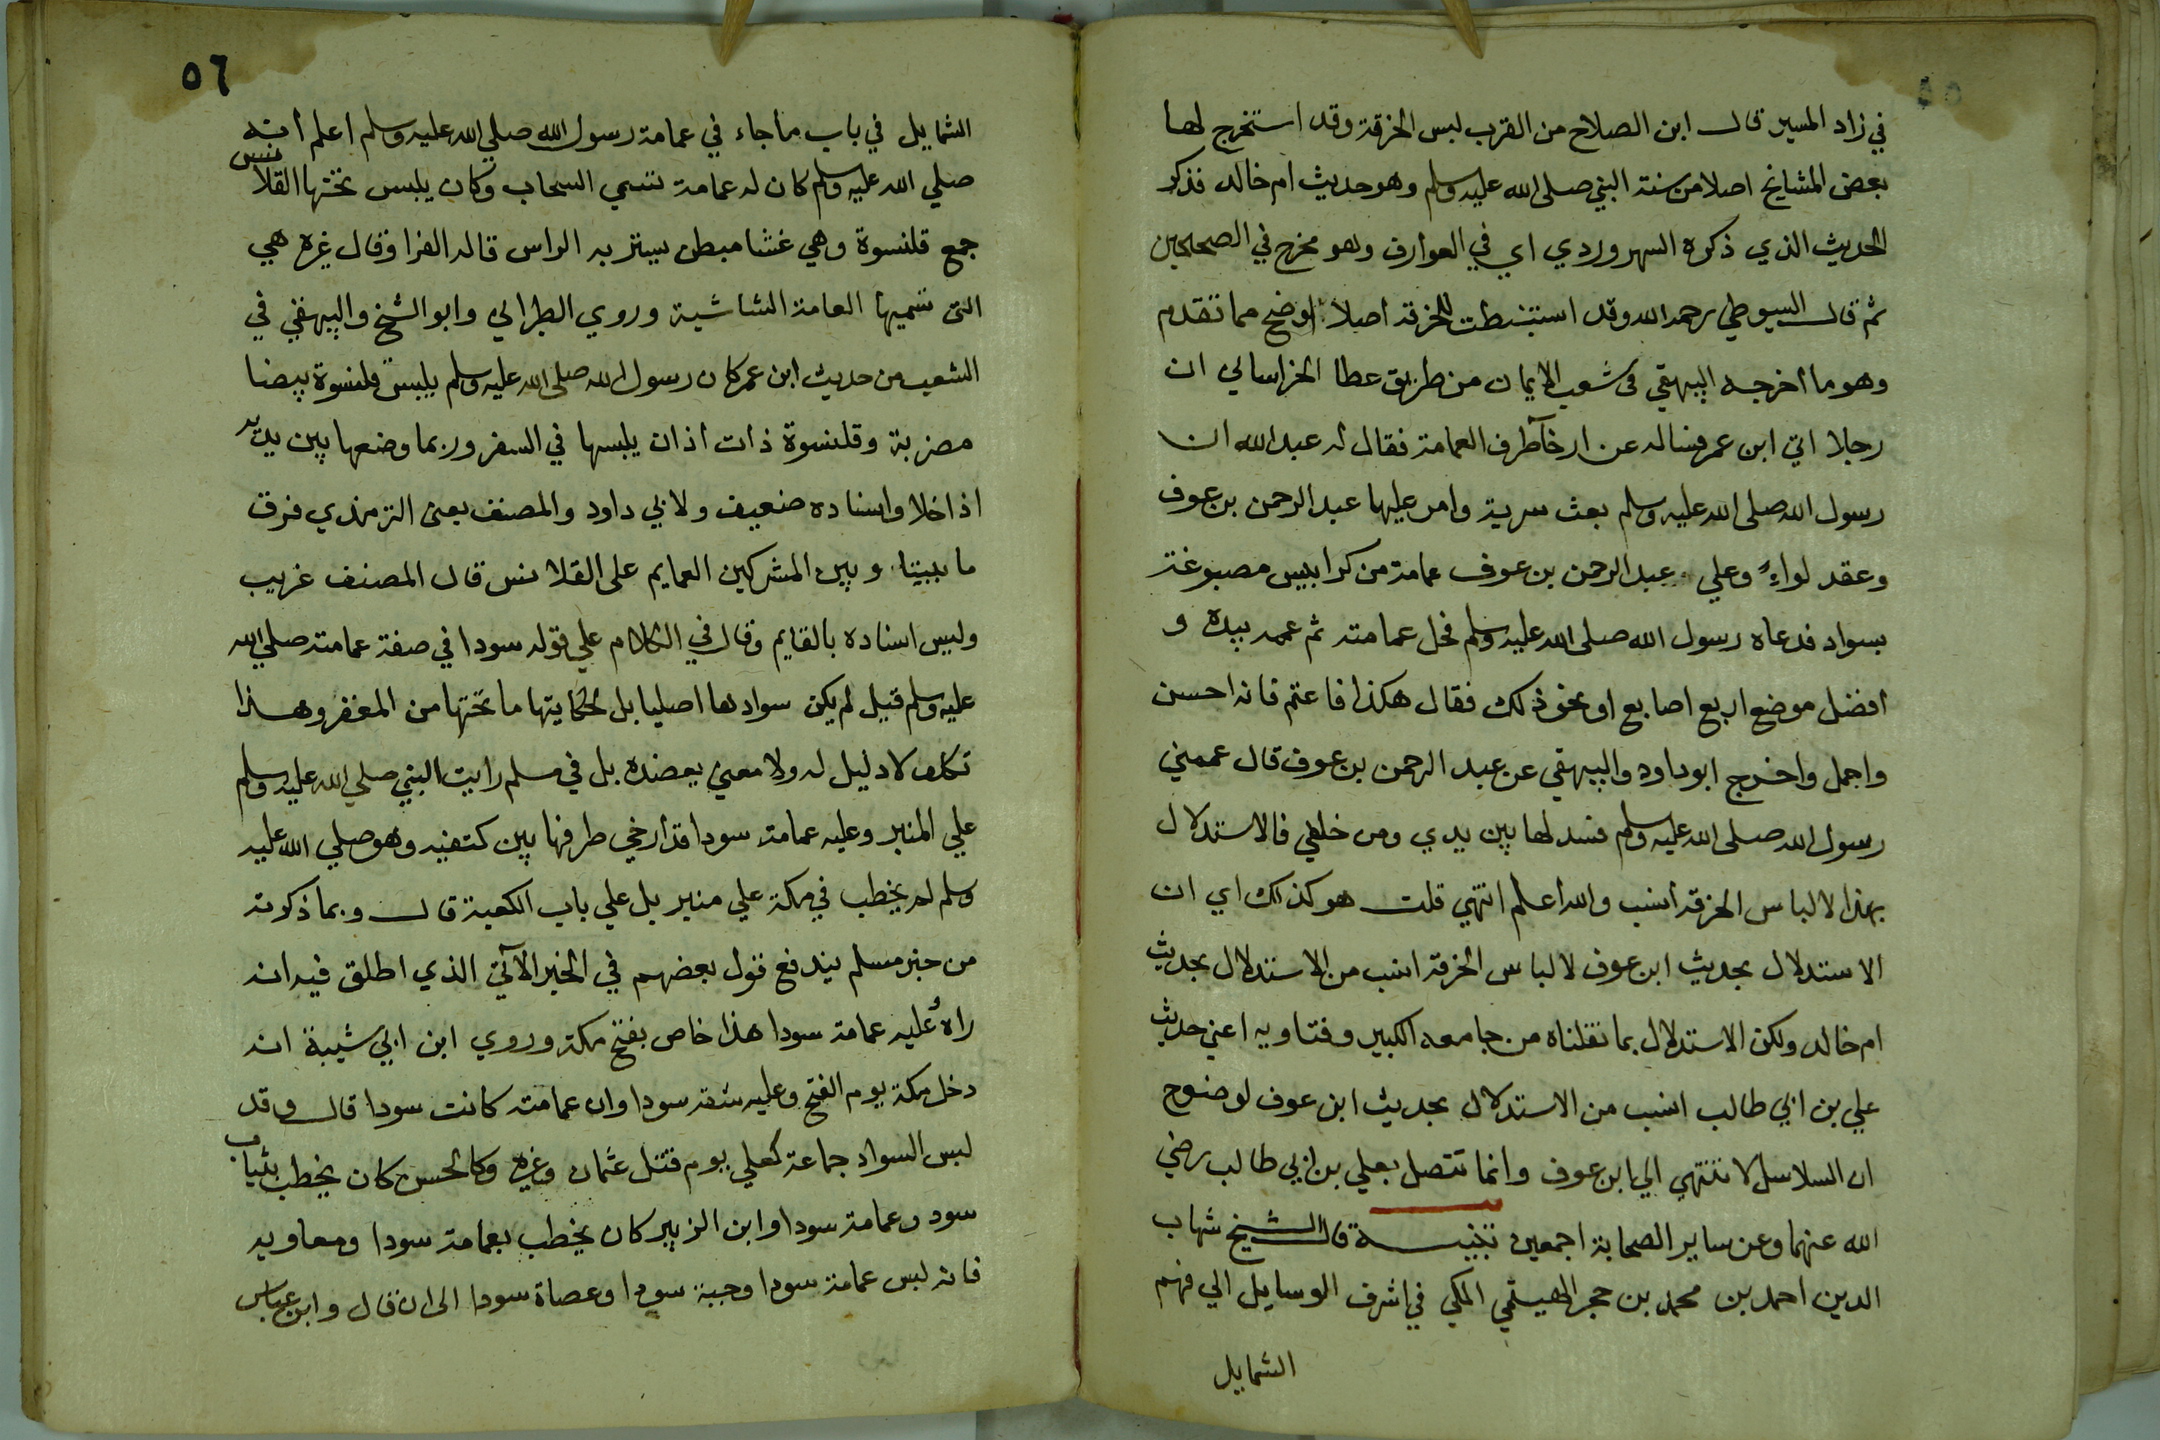 في زاد المسير قال ابن الصلاح من القرب لبس الخرقة وقد استخرج لها
بعض المشايخ اصلا من سنة النبي صلى الله عليه وسلم وهو حديث ام خالد فذكر
الحديث الذي ذكره السهروردي اي في العوارف وهو مخرج في الصحيحين
ثم قال السيوطي رحمه الله وقد استنبطت للخرقة اصلا اوضح مما تقدم
وهو ما اخرجه البيهقي في شعب الايمان من طريق عطا الخراساني ان
رجلا اتي ابن عمر فساله عن ارخآ طرف العمامة فقال له عبد الله ان
رسول الله صلى الله عليه وسلم بعث سرية وامر عليها عبد الرحمن بن عوف
وعقد لواءً وعلي عبد الرحمن بن عوف عمامة من كرابيس مصبوغة
بسواد فدعاه رسول الله صلى الله عليه وسلم فحل عمامته ثم عممه بيده و
افضل موضع اربع اصابع او نحو ذلك فقال هكذا فاعتم فانه احسن
واجمل واخرج ابو داود والبيهقي عن عبد الرحمن بن عوف قال عممني
رسول الله صلى الله عليه وسلم فسدلها بين يدي ومن خلفي فالاستدلال
بهذا لالباس الخرقة انسب والله اعلم انتهي قلت هو كذلك اي ان
الاستدلال بحديث ابن عوف لالباس الخرقة انسب من الاستدلال بحديث
ام خالد ولكن الاستدلال بما نقلناه من جامعه الكبير وفتاويه اعني حديث
علي بن ابي طالب انسب من الاستدلال بحديث ابن عوف لوضوح
ان السلاسل لا تنتهي الي ابن عوف وانما تتصل بعلي بن ابي طالب رضي
الله عنهما وعن ساير الصحابة اجمعين تنبيه قال الشيخ شهاب
الدين احمد بن محمد بن حجر الهيتمي المكي في اشرف الوسايل الي فهم
الشمايل
٥٦
الشمايل في باب ما جاء في عمامة رسول الله صلى الله عليه وسلم اعلم انه
صلي الله عليه وسلم كان له عمامة تسمي السحاب وكان يلبس تحتها القلانس
جمع قلنسوة وهي غشا مبطن يستر به الراس قاله الفرا وقال غيره هي
التي تسميها العامة الشاشية وروي الطبراني وابو الشيخ والبيهقي في
الشعب من حديث ابن عمر كان رسول الله صلى الله عليه وسلم يلبس قلنسوة بيضا
مضربة وقلنسوة ذات اذان يلبسها في السفر وربما وضعها بين يديه
اذا خلا واسناده ضعيف ولابي داود والمصنف يعني الترمذي فرق
ما بيننا وبين المشركين العمايم على القلانس قال المصنف غريب
وليس اسناده بالقايم وقال في الكلام علي قوله سودا في صفة عمامته صلي الله
عليه وسلم قيل لم يكن سوادها اصليا بل لحكايتها ما تحتها من المغفر وهذا
تكلف لا دليل له ولا معني يعضده بل في مسلم رايت النبي صلي الله عليه وسلم
علي المنبر وعليه عمامة سودا قد ارخي طرفها بين كتفيه وهو صلي الله عليه
وسلم لم يخطب في مكة علي منبر بل علي باب الكعبة قال وبما ذكرته
من خبر مسلم يندفع قول بعضهم في الخبر الآتي الذي اطلق فيه انه
راه عليه عمامة سودا هذا خاص بفتح مكة وروي ابن ابي شيبة انه
دخل مكة يوم الفتح وعليه شقة سودا وان عمامته كانت سودا قال وقد
لبس السواد جماعة كعلي يوم قتل عثمان وغيره وكالحسن كان يخطب بثياب
سود وعمامة سودا وابن الزبير كان يخطب بعمامة سودا ومعاويه
فانه لبس عمامة سودا وجبة سودا وعصاة سودا الى ان قال وابن عباس